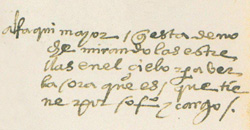 alfaqui mayor / questa de no
che mirando las estre
llas en el cielo para ver
la ora que es / que tie
ne por oficio y cargo /.